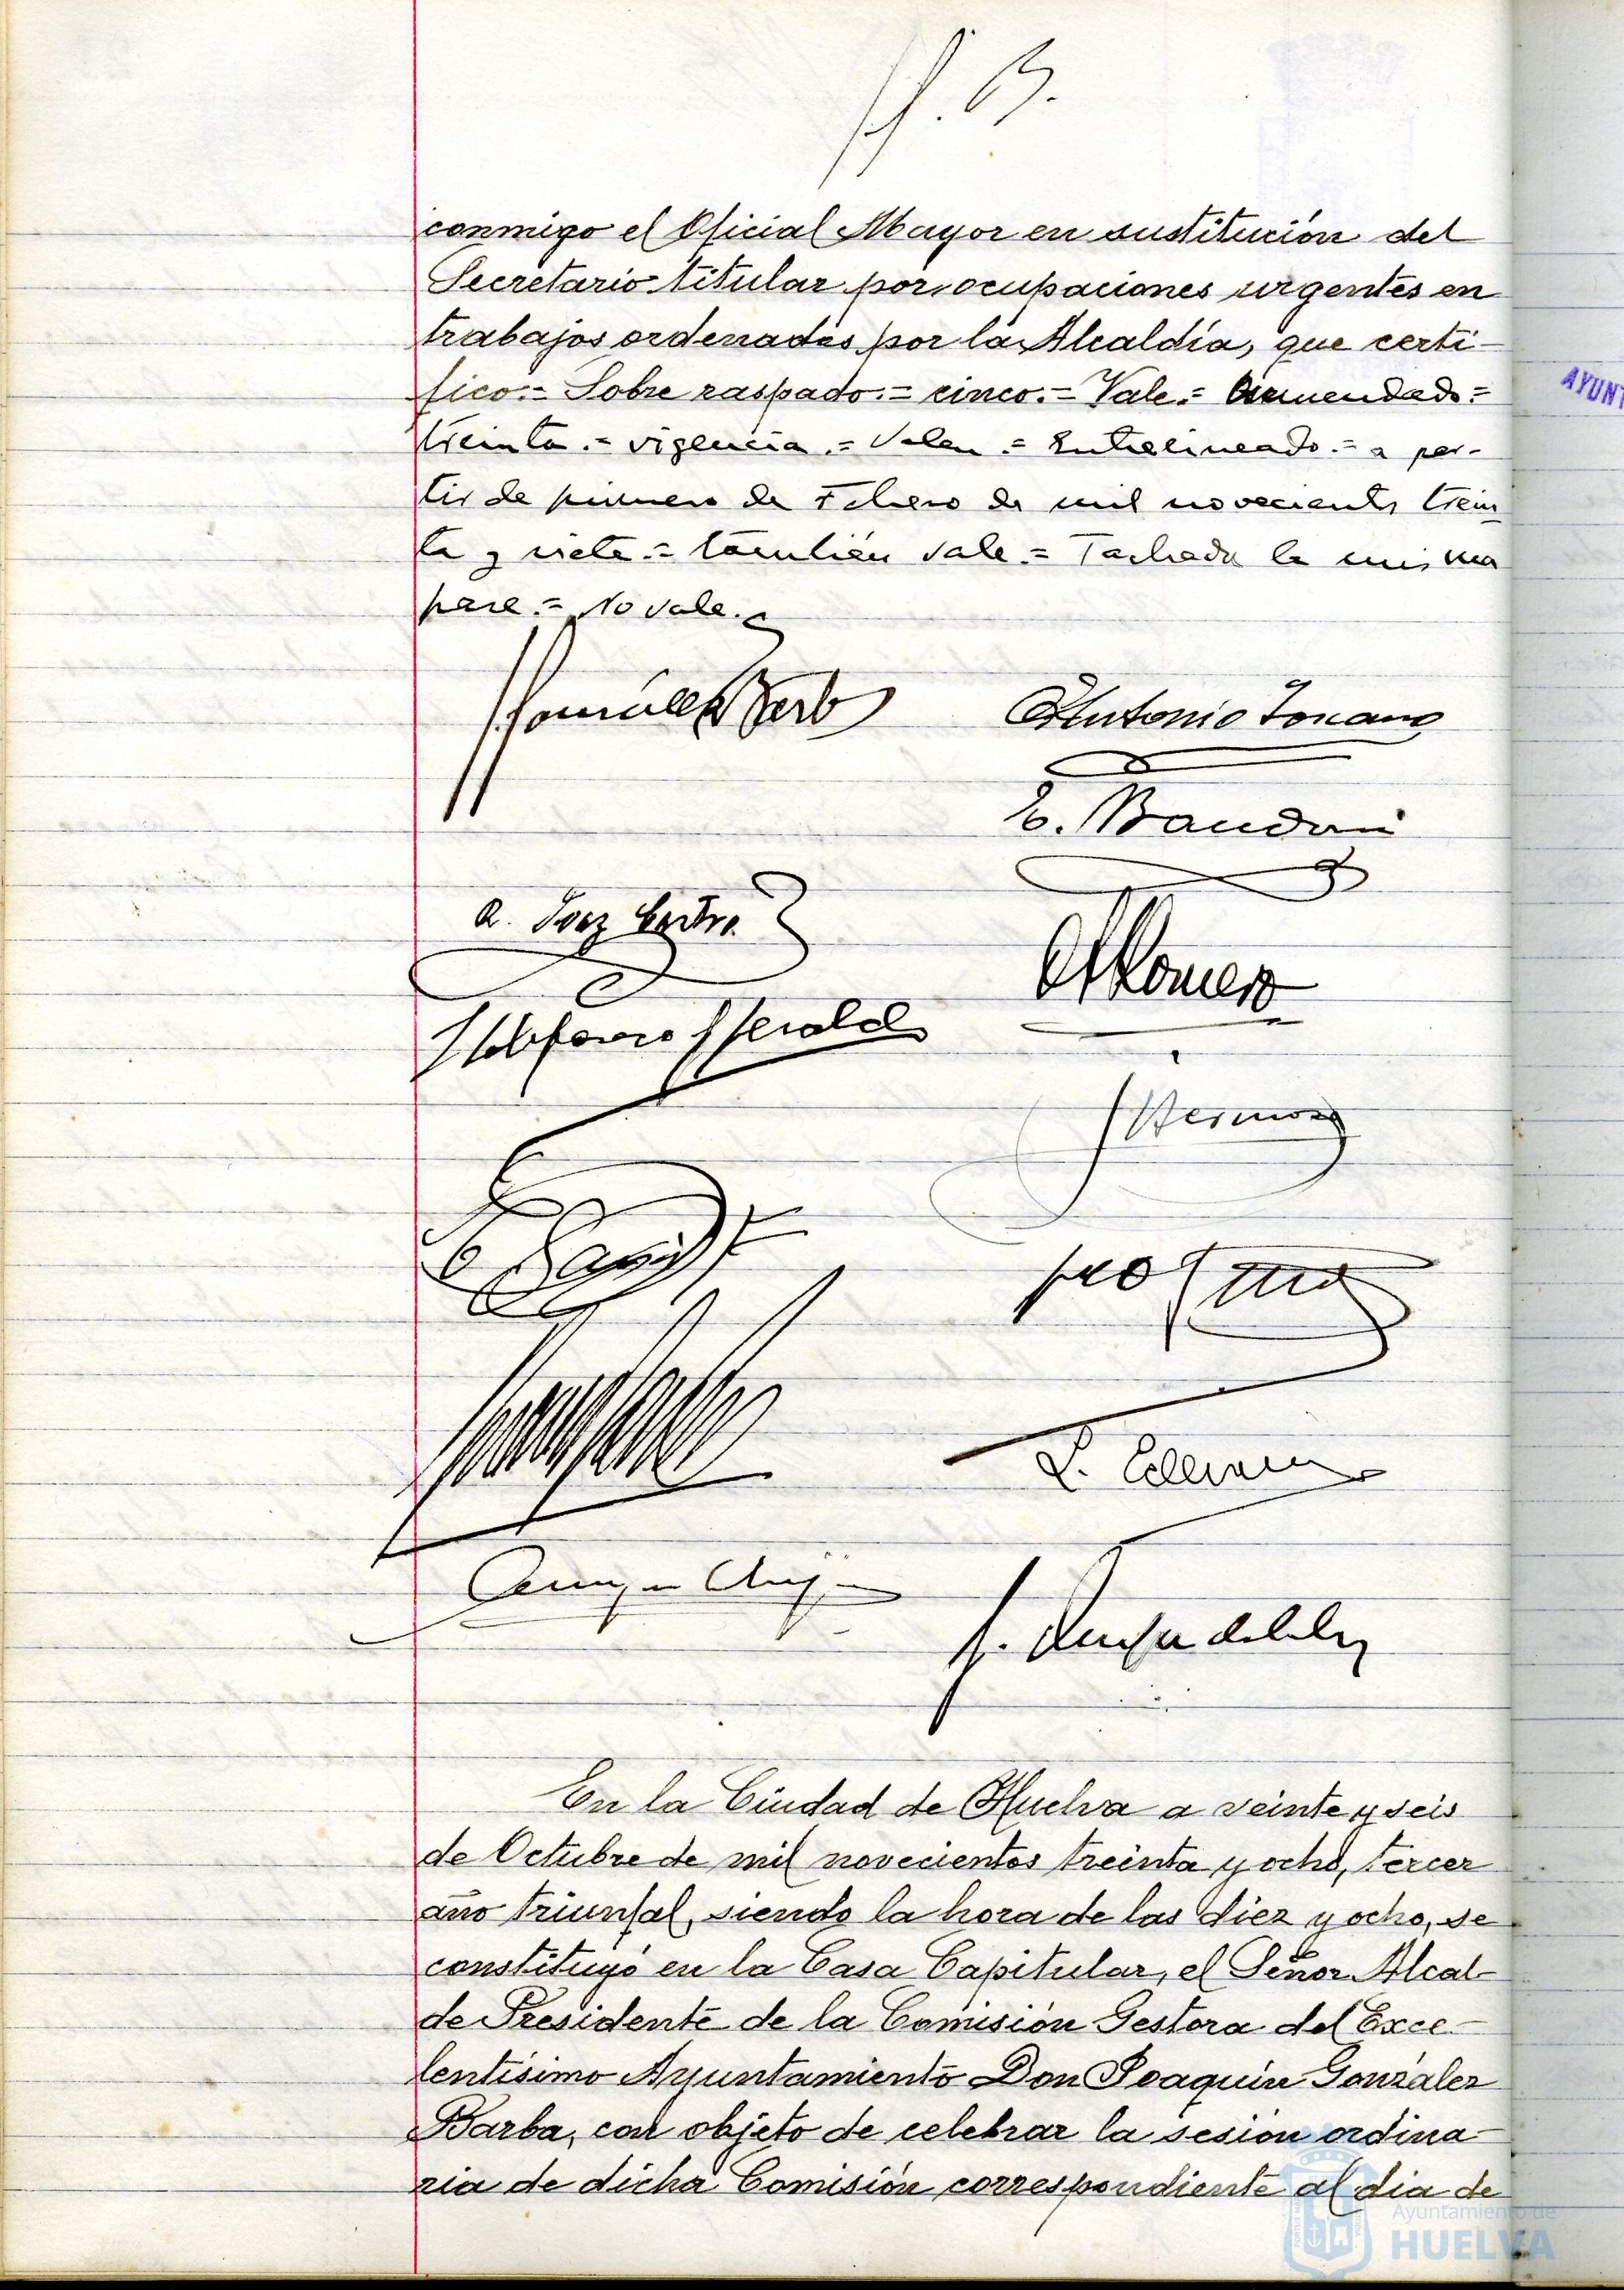 conmigo el Oficial Mayor en sustitución del
Secretario titular por ocupaciones urgentes en
trabajos ordenados por la Alcaldía, que certi-
fico.= Sobre raspado.= cinco.= Vale.= Enmendado.=
treinta.= vigencia.= Valen.= Entrelineado.= a par-
tir de primero de Febrero de mil novecientos trein
ta y siete.= también vale.= Tachada la misma
frase.= No vale.
González Barba
Antonio Toscano
E.
Romero
J Hermoso
En la Ciudad de Huelva a veinte y seis
de Octubre de mil novecientos treinta y ocho, tercer
año triunfal, siendo la hora de las diez y ocho, se
constituyó en la Casa Capitular, el Señor Alcal-
de Presidente de la Comisión Gestora del Exce-
lentísimo Ayuntamiento Don Joaquín González
Barba, con objeto de celebrar la sesión ordina-
ria de dicha Comisión correspondiente al dia de
AYUNT
Ayuntamiento de
HUELVA